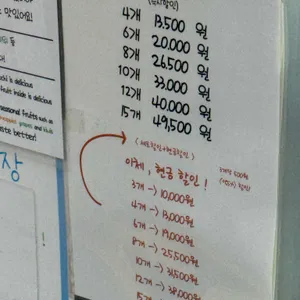 맛있어요!
등
uchi is delicious
fruit inside is delicious
easonal fruits such as
and
ste better!
장
4개 13,500 원
6개 20,000 원
8개 26,500 원
10개 33,000 원
12개 40,000 원
15개 49,500 원
이체, 현금 할인!
3개 → 10,000원
4개 → 13,000원
6개 → 19,000원
8개 → 25,500원
10개 → 31,500원
12개 → 38,000원
15개